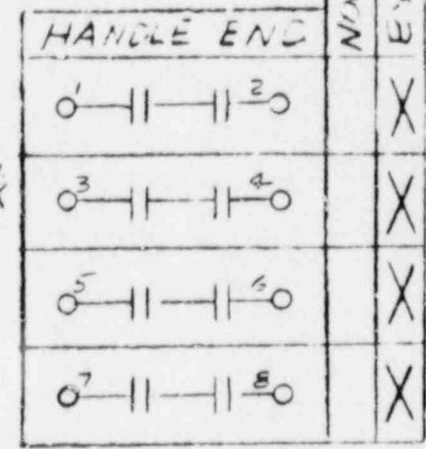 HANDLE END
1 2
X
3 4
X
5 6
X
7 8
X